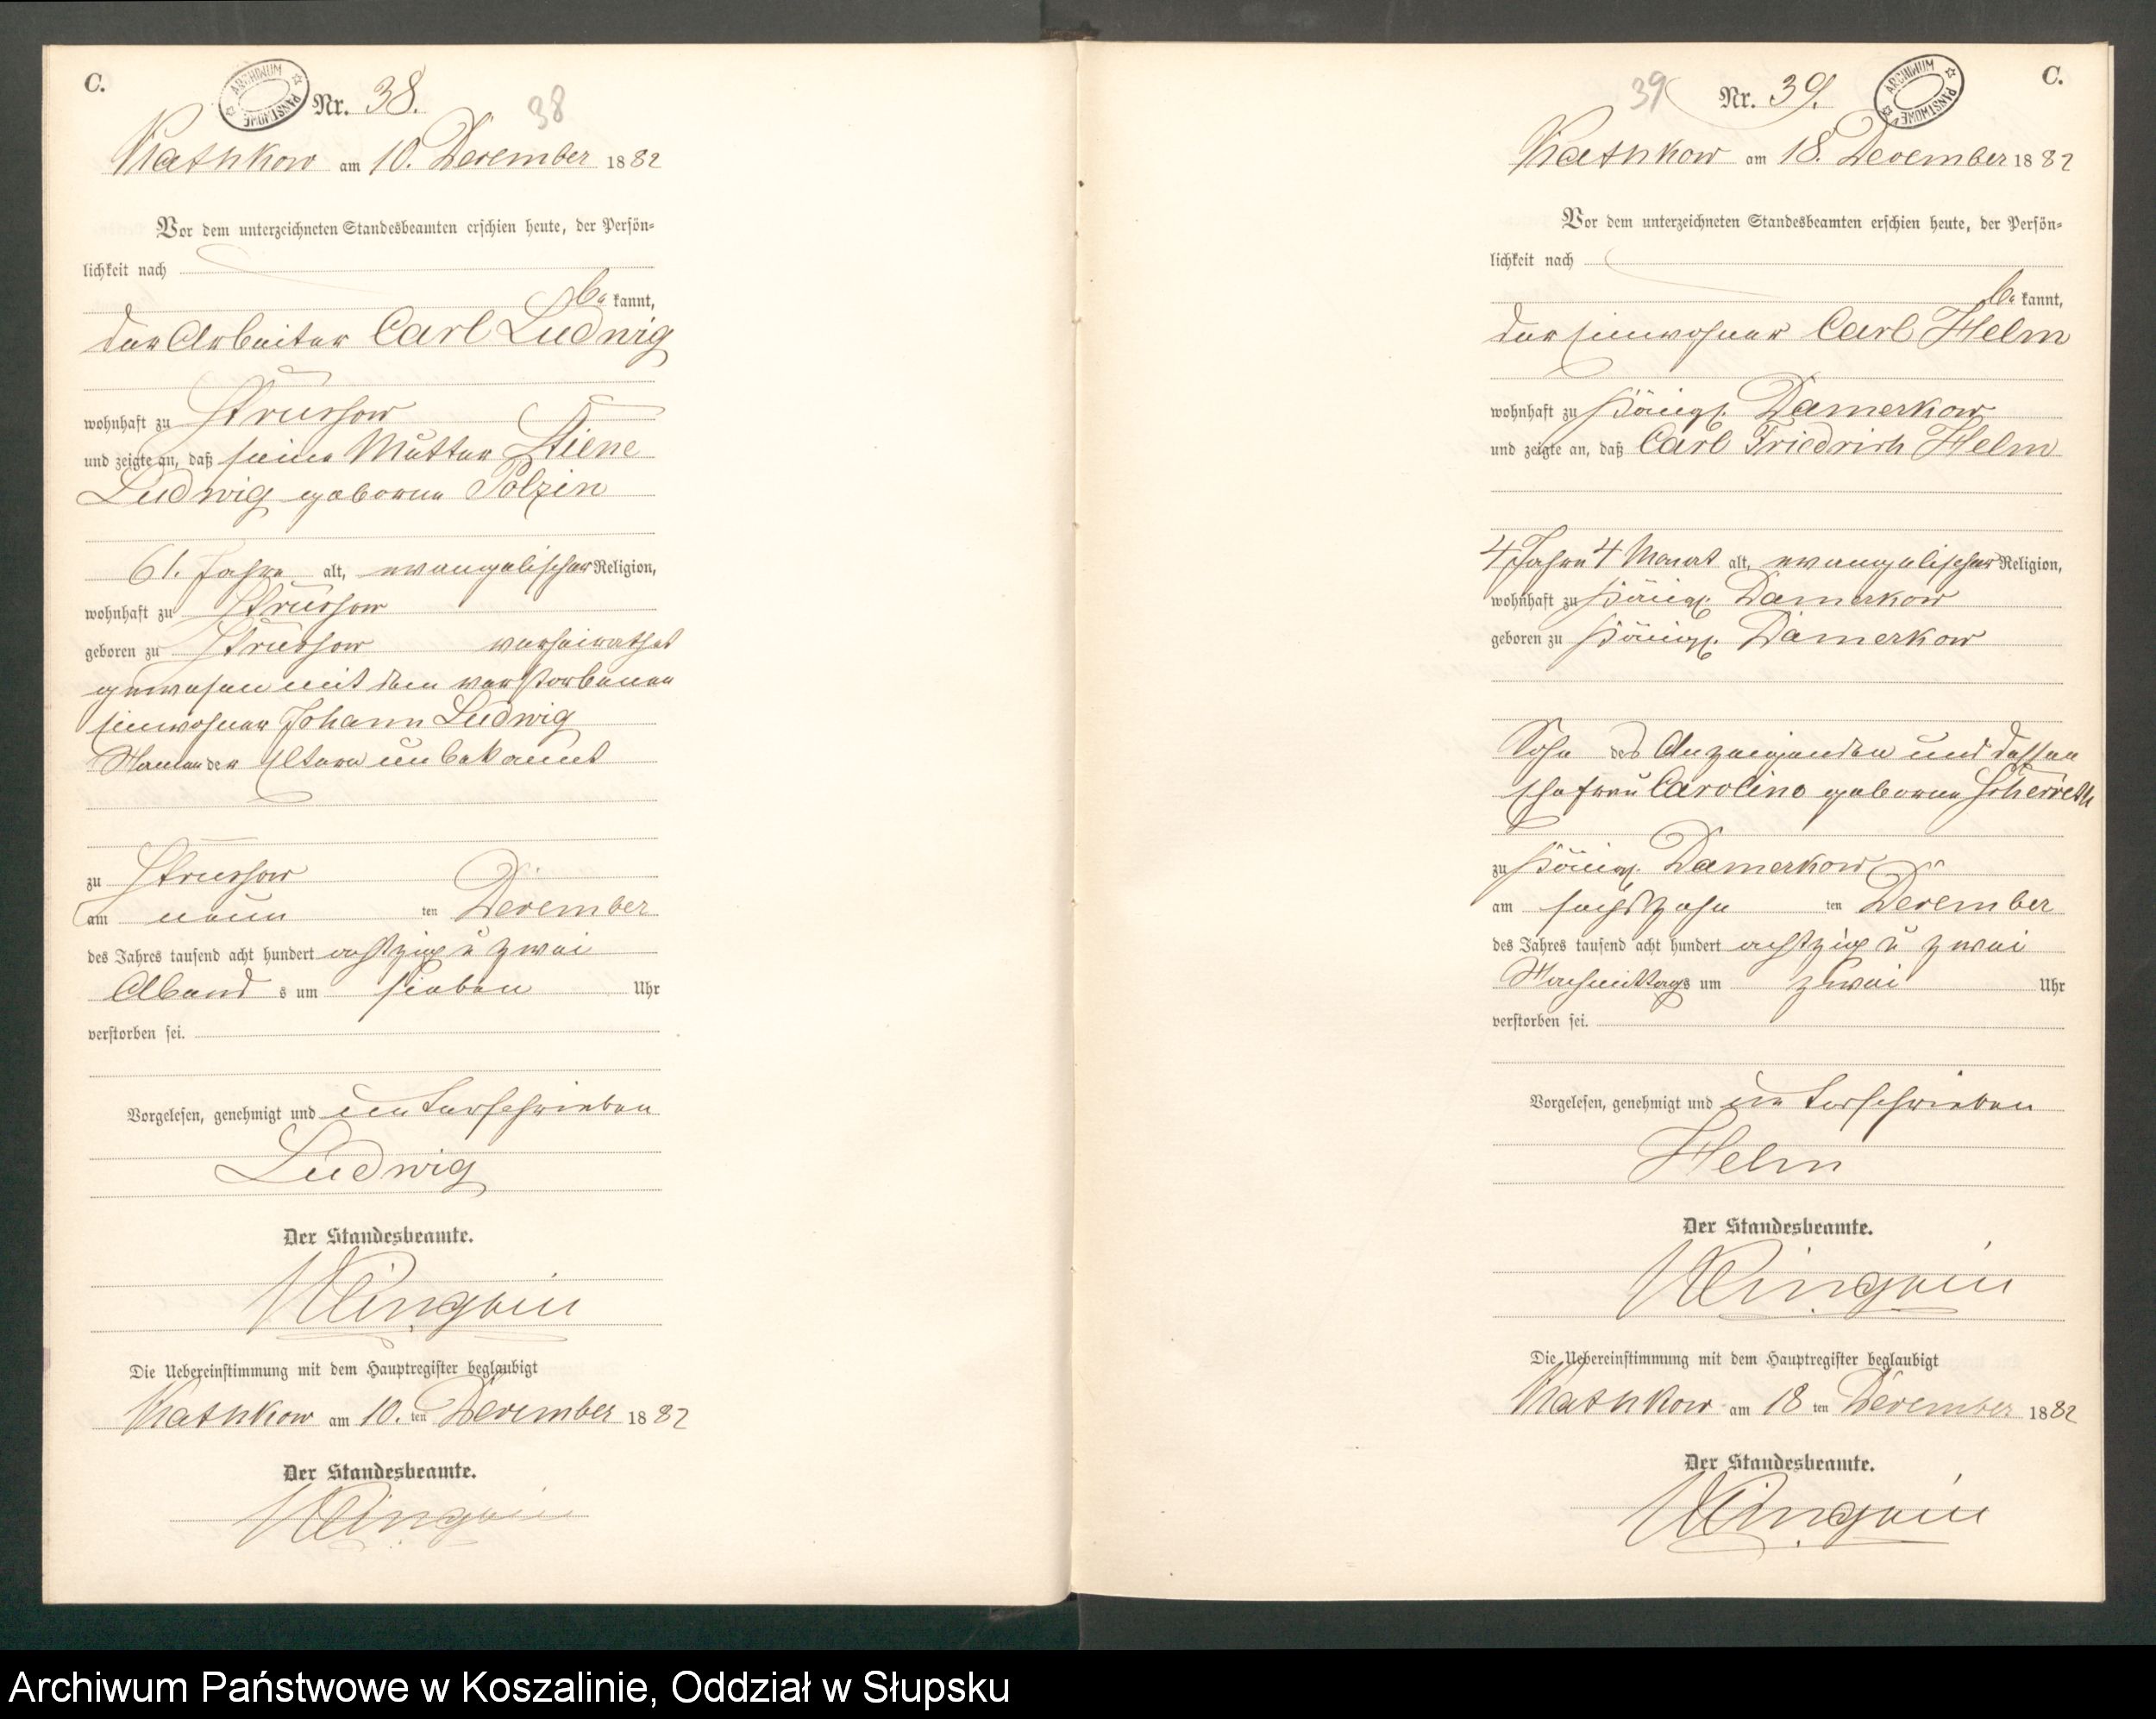 C.
ARCHIWUM PAŃSTWOWE
Nr. 38.
38
Kathkow am 10. December 1882
Vor dem unterzeichneten Standesbeamten erschien heute, der Persön-
lichkeit nach
be kannt,
der Arbeiter Carl Ludwig
wohnhaft zu Strussow
und zeigte an, daß seine Mutter Stiene
Ludwig geborne Polzin
61. Jahre alt, evangelischer Religion,
wohnhaft zu Strussow
geboren zu Strussow verheirathet
gewesen mit dem verstorbenen
Einwohner Johann Ludwig
Namen der Eltern unbekannt
zu Strussow
am neun ten December
des Jahres tausend acht hundert achtzig u zwei
Abend s um sieben Uhr
verstorben sei.
Vorgelesen, genehmigt und unterschrieben
Ludwig
Der Standesbeamte.
Die Uebereinstimmung mit dem Hauptregister beglaubigt
Kathkow am 10. ten December 1882
Der Standesbeamte.
C.
39
Nr. 39.
ARCHIWUM PAŃSTWOWE
Kathkow am 18. December 1882
Vor dem unterzeichneten Standesbeamten erschien heute, der Persön-
lichkeit nach
be kannt,
der Einwohner Carl Helm
wohnhaft zu Königl. Damerkow
und zeigte an, daß Carl Friedrich Helm
4 Jahre 4 Monat alt, evangelischer Religion,
wohnhaft zu Königl. Damerkow
geboren zu Königl. Damerkow
Sohn des Anzeigenden und dessen
Ehefrau Caroline geborne
zu Königl. Damerkow
am sechszehn ten December
des Jahres tausend acht hundert achtzig u zwei
Nachmittags um zwei Uhr
verstorben sei.
Vorgelesen, genehmigt und unterschrieben
Helm
Der Standesbeamte.
Die Uebereinstimmung mit dem Hauptregister beglaubigt
Kathkow am 18 ten December 1882
Der Standesbeamte.
Archiwum Państwowe w Koszalinie, Oddział w Słupsku